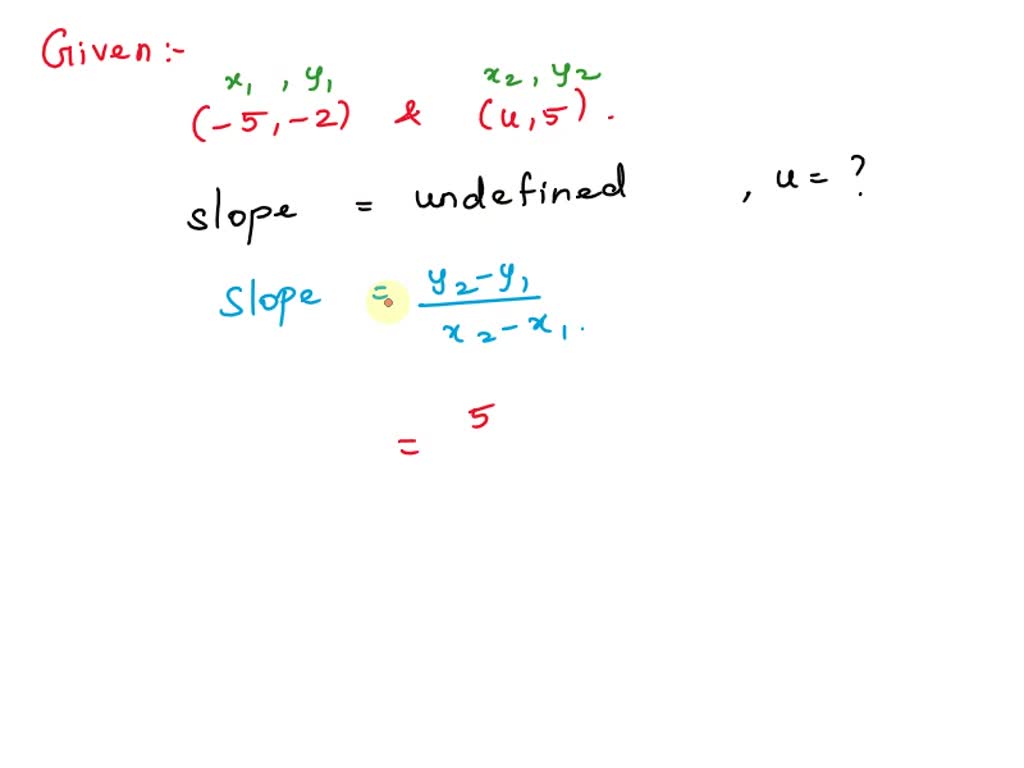 Given :-
x₁ , y₁ x₂ , y₂
(-5, -2) & (u, 5) .
slope = undefined , u = ?
slope = y₂-y₁ / x₂-x₁ .
= 5